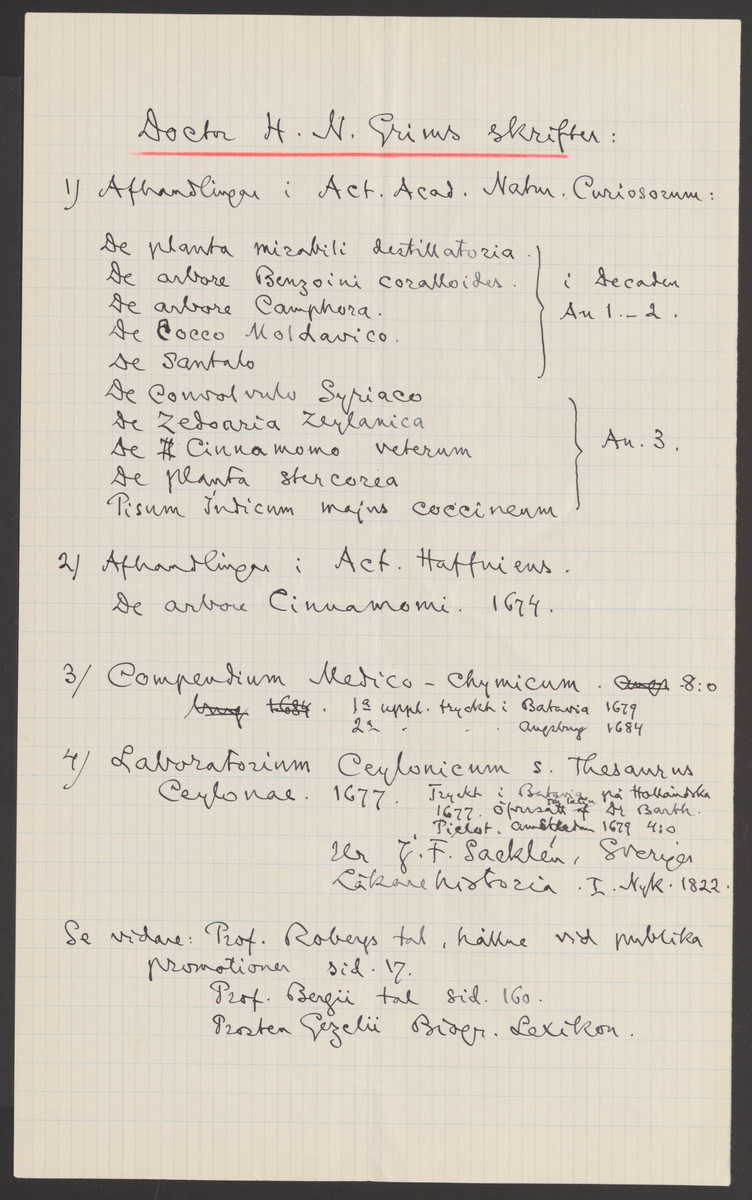 Doctor H. N. Grims skrifter:
1) Afhandlingar i Act. Acad. Natur. Curiosorum:
De planta mirabili destillatoria.
De arbore Benzoini coralloides.
De arbore Camphora.
De Cocco Moldavico.
De Santalo
i Decaden
An 1.-2.
De Convolvulo Syriaco
De Zedoaria Zeylanica
De Cinnamomo veterum
De planta stercorea
Pisum Indicum majus coccineum
An. 3.
2) Afhandlingar i Act. Haffniens.
De arbore Cinnamomi. 1674.
3/ Compendium Medico-chymicum. 8:o
1a uppl. tryckt i Batavia 1679
2a " " " Augsburg 1684
4) Laboratorium Ceylonicum s. Thesaurus
Ceylonae. 1677. Tryckt i Batavia på Holländska
1677. öfversatt till latin af Dr Barth.
Pielat. Amsterdam 1679 4:o
Ur J. F. Sacklén, Sveriges
Läkarehistoria. I. Nyk. 1822.
Se vidare: Prof. Robergs tal, hållne vid publika
promotioner sid. 17.
Prof. Bergii tal sid. 160.
Prosten Gezelii Biogr. Lexikon.